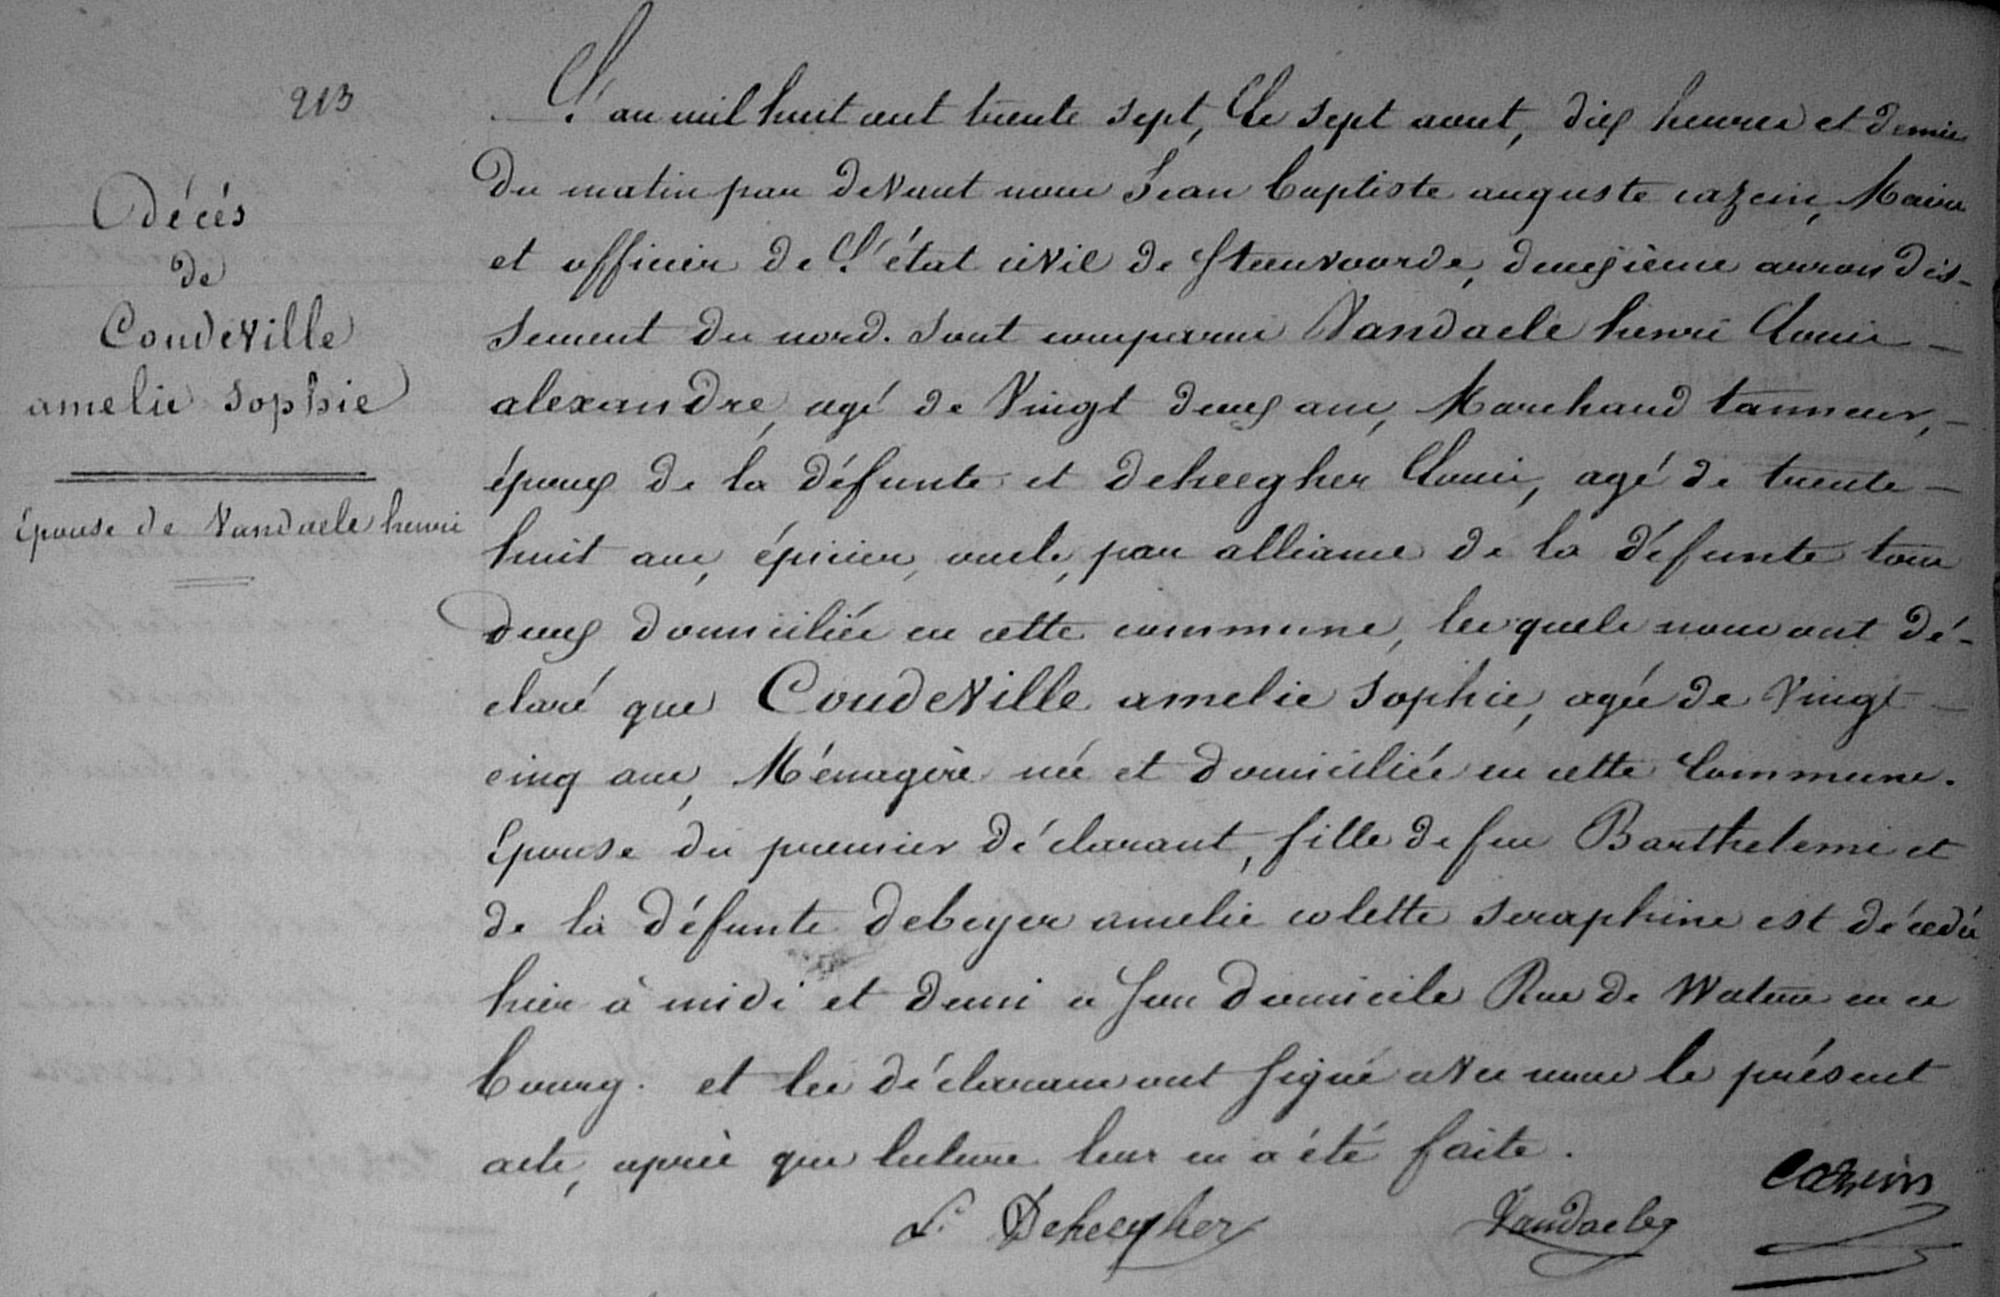 213
Décés
de
Coudeville
amelie sophie
épouse de Vandaele henri
L'an mil huit cent trente sept, le sept aout, dix heures et demie
du matin par devant nous Jean baptiste auguste cazein, Maire
et officier de L'état civil de Steenvoorde, deuxième arrondis-
sement du nord. sont comparus Vandaele henri Louis
alexandre, agé de Vingt deux ans, Marchand tanneur,
époux de la défunte et deheegher Louis, agé de trente
huit ans, épicier, oncle, par alliance de la défunte tous
deux domiciliés en cette commune, lesquels nous ont dé-
claré que Coudeville amelie sophie, agée de Vingt
cinq ans, Ménagère née et domiciliée en cette Commune.
épouse du premier déclarant, fille de feu Barthelemi et
de la défunte debeyer amelie colette seraphine est décédée
hier à midi et demi a son domicile Rue de Watou en ce
bourg. et les déclarans ont signé avec nous le présent
acte, après que lecture leur en a été faite.
L. Deheegher Vandaele Cazein